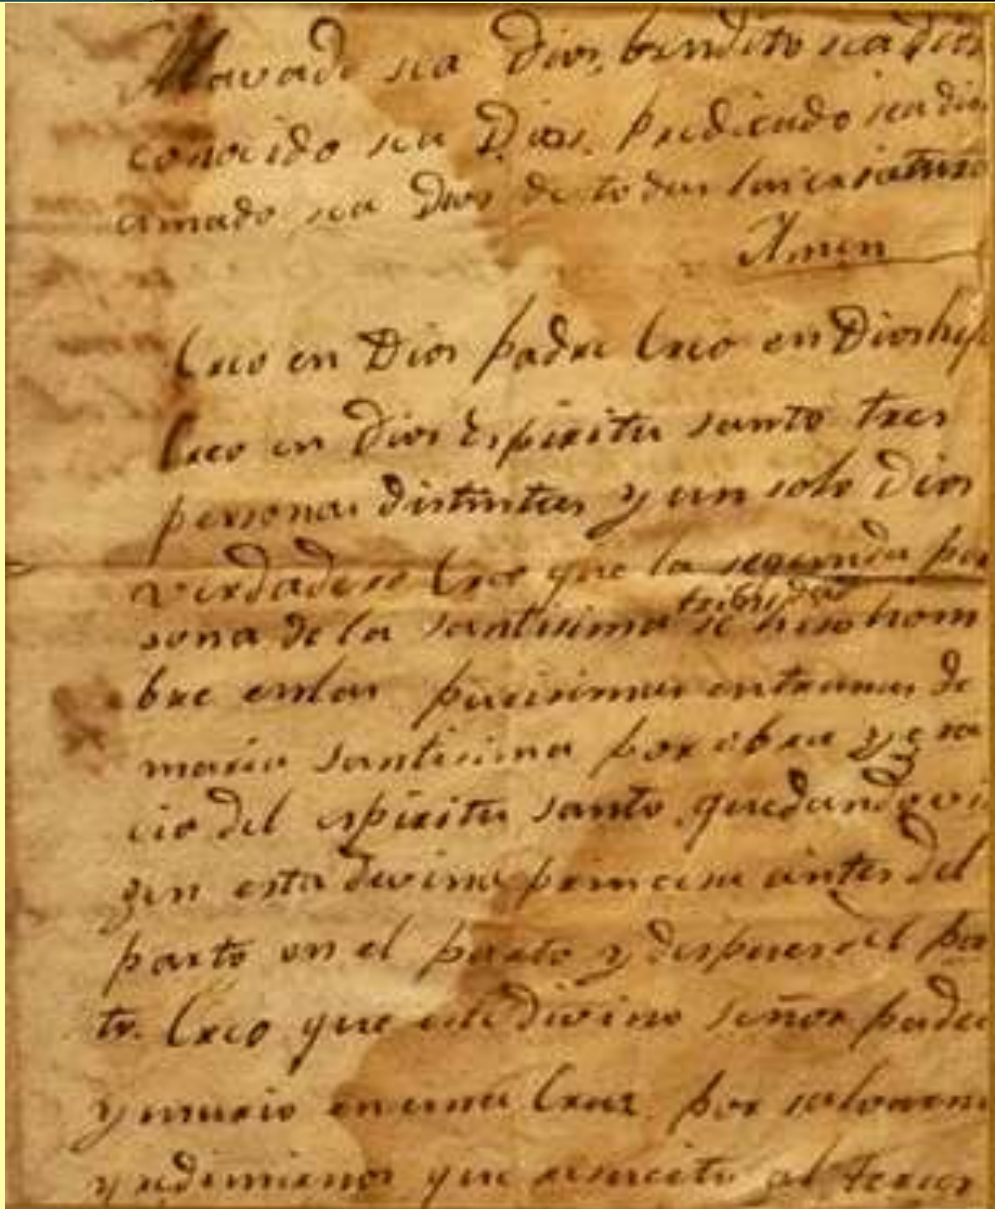 Alavado sea Dios, bendito sea Dios
conocido sea Dios. predicado sea dios
amado sea Dios de todas las
Amen
Creo en Dios padre Creo en Dios hijo
Creo en Dios espiritu santo tres
personas distintas y un solo Dios
verdadero Creo que la segunda per
sona de la santisima se hiso hom
bre en las purisimas entranas de
maria santisima por obra y gra
cia del espiritu santo, quedando vi
gen esta divina princesa antes del
parto en el parto y despues del par
to. Creo que este divino señor padec
y murio en una Cruz por salvarno
y redimirnos que resucito al tercer